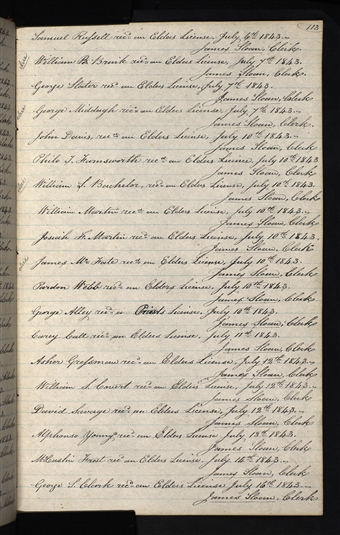 113
Samuel Russell, rec.d an Elders License, July 6th 1843.
James Sloan, Clerk
William B. Brink rec.d an Elders License, July 7th 1843.
James Sloan, Clerk.
George Slater rec.d an Elders License, July 7th 1843.
James Sloan, Clerk
George Middagh rec.d an Elders License, July 7th 1843.
James Sloan, Clerk.
John Davis, rec.d an Elders License, July 10th 1843.
James Sloan, Clerk.
Philo T. Farnsworth rec.d an Elders License, July 10th 1843
James Sloan, Clerk.
William S. Bachelor, rec.d an Elders License, July 10th 1843.
James Sloan, Clerk.
William Martin rec.d an Elders License, July 10th 1843.
James Sloan, Clerk
Josiah W. Martin rec.d an Elders License, July 10th 1843.
James Sloan, Clerk
James Mc Fate rec.d an Elders License, July 10th 1843.
James Sloan, Clerk
Pardon Webb rec.d an Elders License, July 10th 1843.
James Sloan, Clerk
George Alley rec.d a Priests License, July 10th 1843.
James Sloan, Clerk
Carey Call rec.d an Elders License, July 11th 1843.
James Sloan, Clerk
Asher Gressman rec.d an Elders License, July 12th 1843.
James Sloan, Clerk
William S. Covert rec.d an Elders License, July 12th 1843.
James Sloan, Clerk
David Savage rec.d an Elders License, July 12th 1843.
James Sloan, Clerk.
Alphonso Young rec.d an Elders License July 13th 1843.
James Sloan, Clerk
McCaslin Frost rec.d an Elders License, July 14th 1843.
James Sloan, Clerk
George S. Clark rec.d an Elders License July 14th 1843.
James Sloan, Clerk